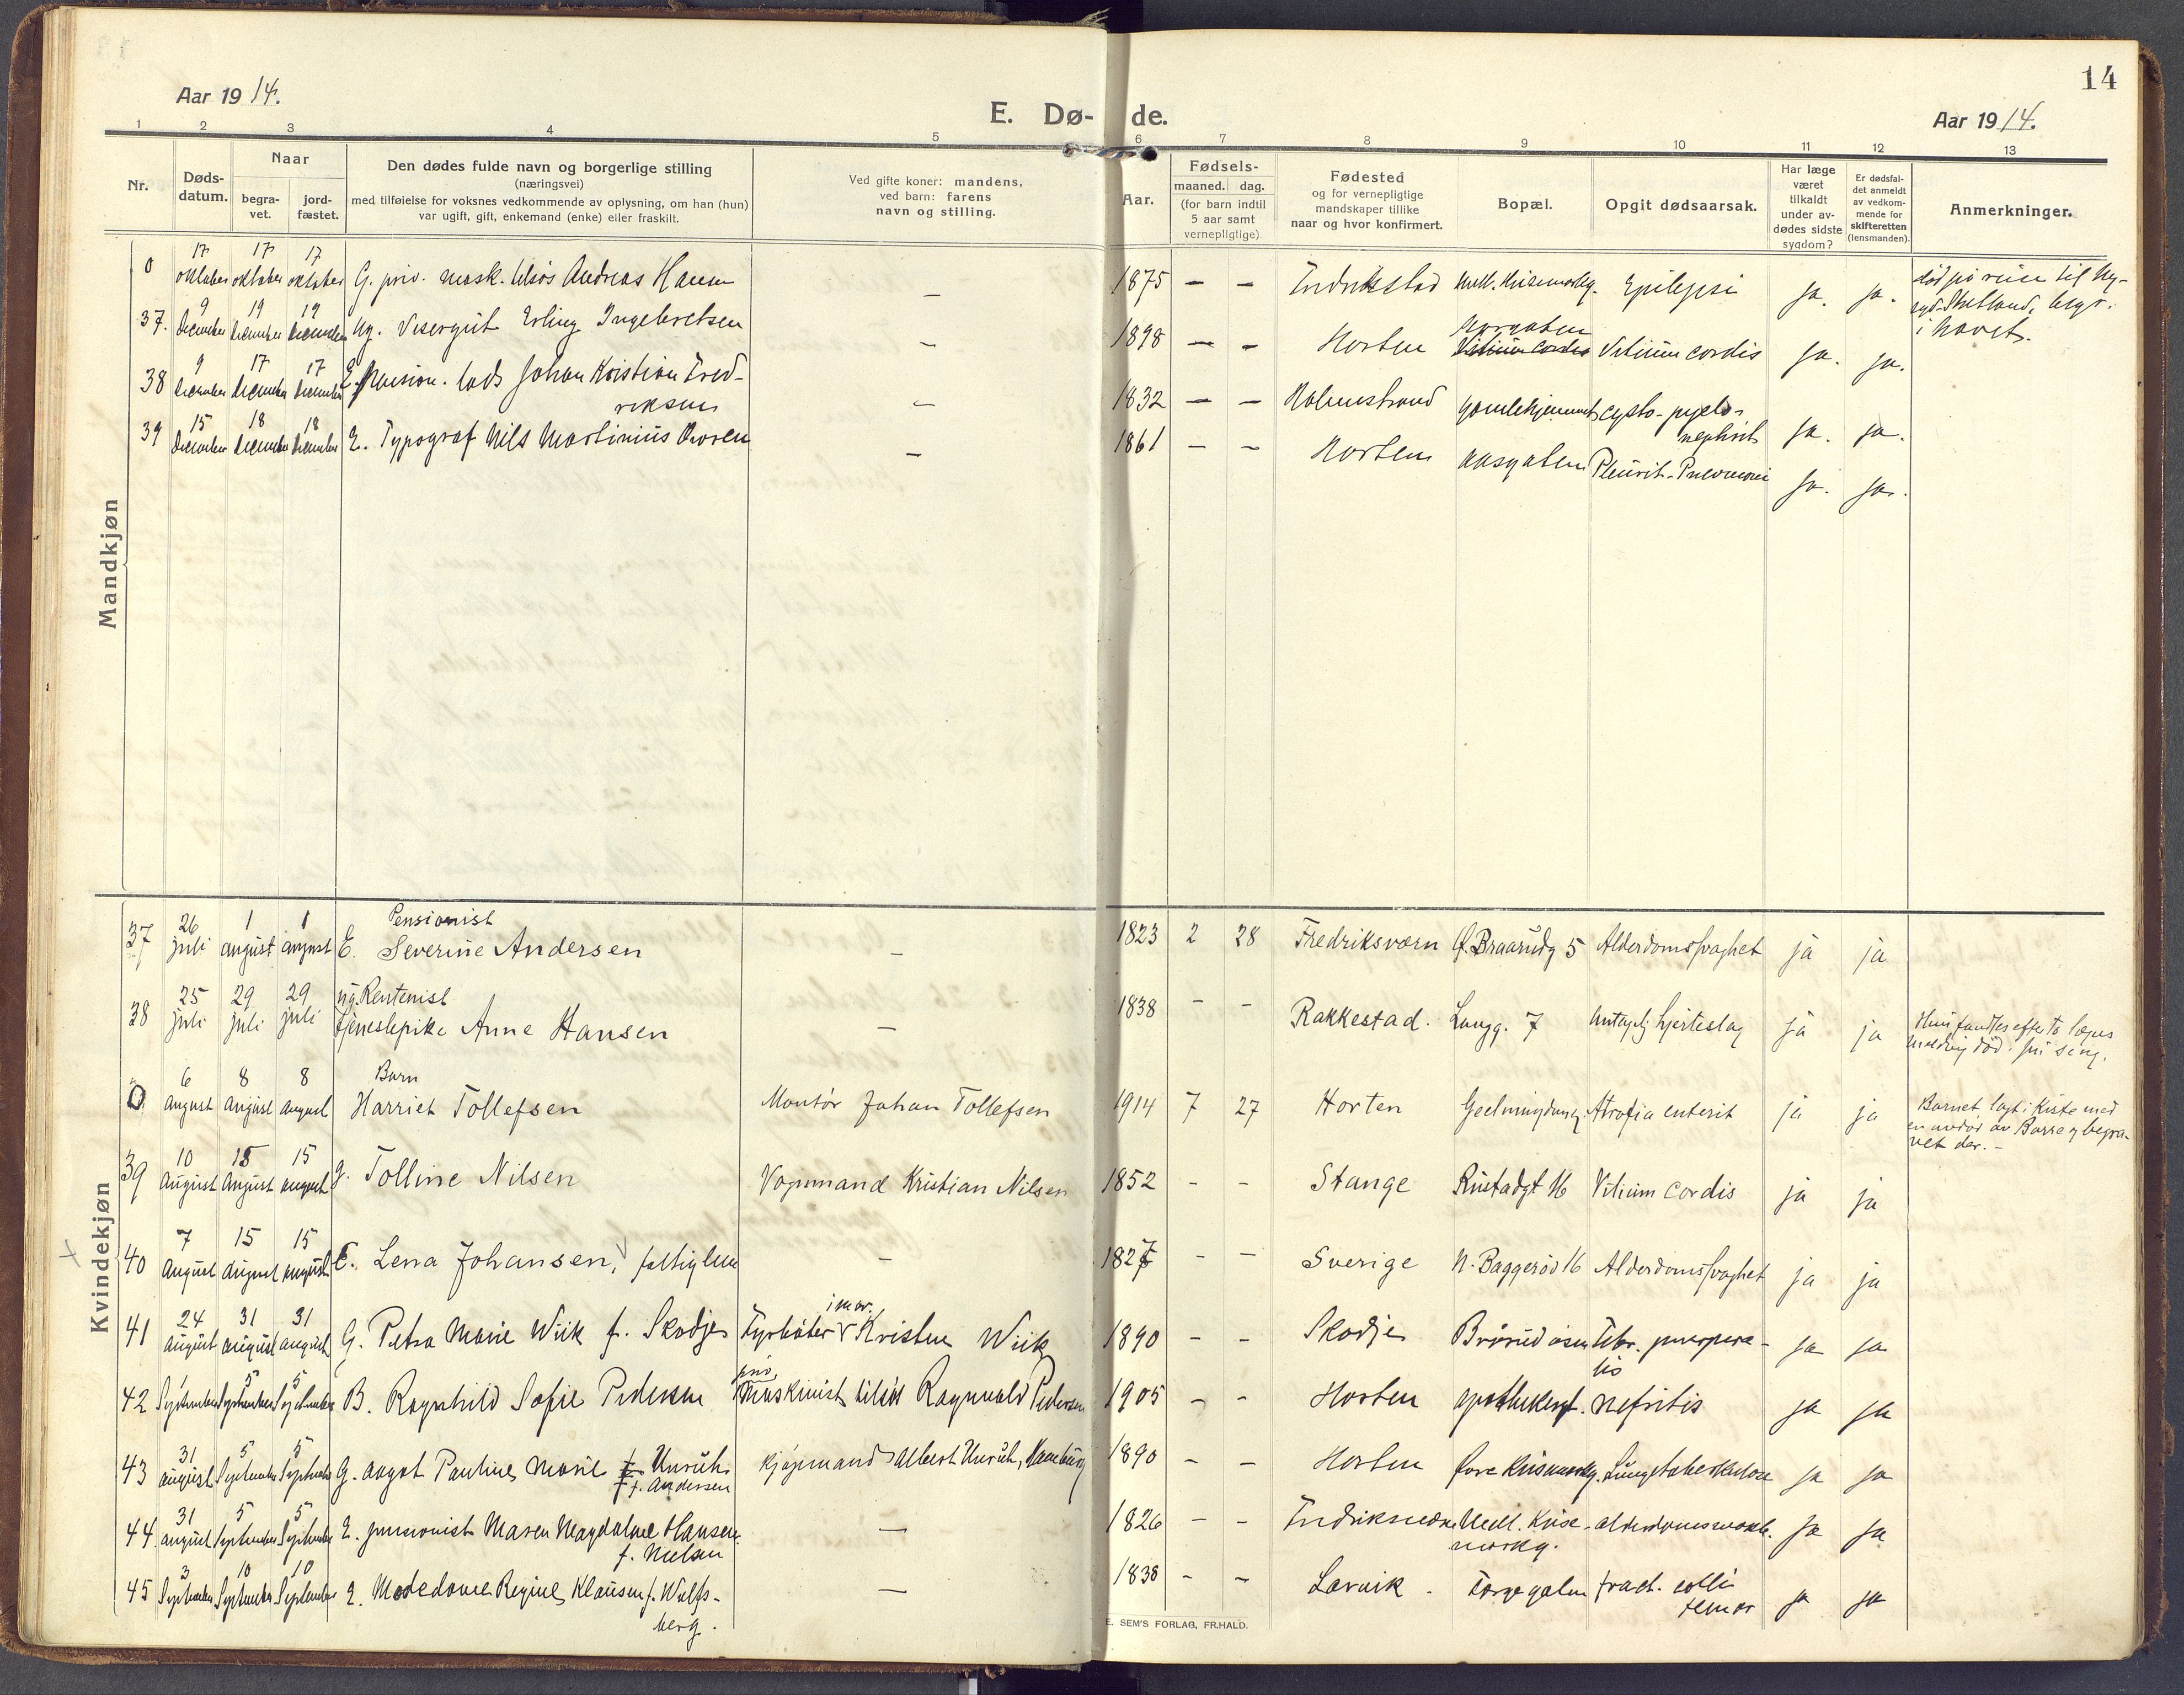 14
Aar 1914.
E. Dø- de.
Aar 1914.
1 2 3 4 5 6 7 8 9 10 11 12 13
Nr.
Døds-
datum.
Naar
begra-
vet.
jord-
fæstet.
Den dødes fulde navn og borgerlige stilling
(næringsvei)
med tilføielse for voksnes vedkommende av oplysning, om han (hun)
var ugift, gift, enkemand (enke) eller fraskilt.
Ved gifte koner: mandens,
ved barn: farens
navn og stilling.
Aar.
Fødsels-
maaned. dag.
(for barn indtil
5 aar samt
vernepligtige)
Fødested
og for vernepligtige
mandskaper tillike
naar og hvor konfirmert.
Bopæl.
Opgit dødsaarsak.
Har læge
været
tilkaldt
under av-
dødes sidste
sygdom?
Er dødsfal-
det anmeldt
av vedkom-
mende for
skifteretten
(lensmanden).
Anmerkninger.
Mandkjøn
0 17 oktober 17 oktober 17 oktober G. priv. mask. Andreas Hansen — 1875 — — Fredrikstad Epilepsi ja. ja. død på reise til
begr.
i havet.
37. 9 December 19 December 19 December Ug. Visergut Erling Ingebretsen — 1898 — — Horten Vitium cordis ja. ja.
Vitium cordis
38 9 December 17 December 17 December E. Pension. lods Johan Kristian Fred-
riksen — 1832 — — Holmestrand Gamlehjemmet cysto-pyelo-
nephrit ja. ja.
39 15 December 18 December 18 December E. Typograf Nils Martinius — 1861 — — Horten Aasgaten Pleurit-Pneumoni ja. ja.
Kvindekjøn
37 26 juli 1 august 1 august Pensionist
E. Severine Andersen — 1823 2 28 Fredriksværn O. Braarudg 5 Alderdomssvaghet ja ja
38 25 juli 29 juli 29 juli ug. Rentenist
tjenestepike Anne Hansen — 1838 - - Rakkestad. Langg. 7 Antagelig hjerteslag ja ja Hun fandtes efter
melding død i sin seng.
0 6 august 8 august 8 august Barn
Harriet Tollefsen Montør Johan Tollefsen 1914 7 27 Horten Atrofia enterit ja ja Barnet lagt i kiste med
en av Borre og begra-
vet der. –
39 10 August 15 August 15 august g. Tolline Nilsen Vognmand Kristian Nilsen 1852 - - Stange Rustadgt 16 Vitium cordis ja ja
40 7 August 15 August 15 august E. Lena Johansen, fattiglem — 1827 - - Sverige N. Baggerød 16 Alderdomssvaghet ja ja
41 24 august 31 august 31 august G. Petra Marie Wiik f. Skodje Fyrbøter i mar. Kristen Wiik 1890 - - Skodje Febr. puerpera-
lis ja ja
42 1 September 5 September 5 September B. Ragnhild Sofie Pedersen priv. Maskinist Ragnvald Pedersen 1905 - - Horten apothekergt. Nefritis ja ja
43 31 august 5 September 5 September G. Aagot Pauline Marie Unruh
f. Andersen Kjøpmand Albert Unruh, Hamburg 1890 - - Horten Lungetuberkulose ja ja
44. 31 august 5 September 5 September E. pensionist Maren Magdalene Hansen
f. Nielsen — 1826 - - Fredriksværn ja ja
45 3 September 10 September 10 September E. Regine Klausen f. Wulfs-
berg. — 1838 - - Larvik Torvegaten fract. colli
femor ja ja
E. SEM'S FORLAG, FR.HALD.